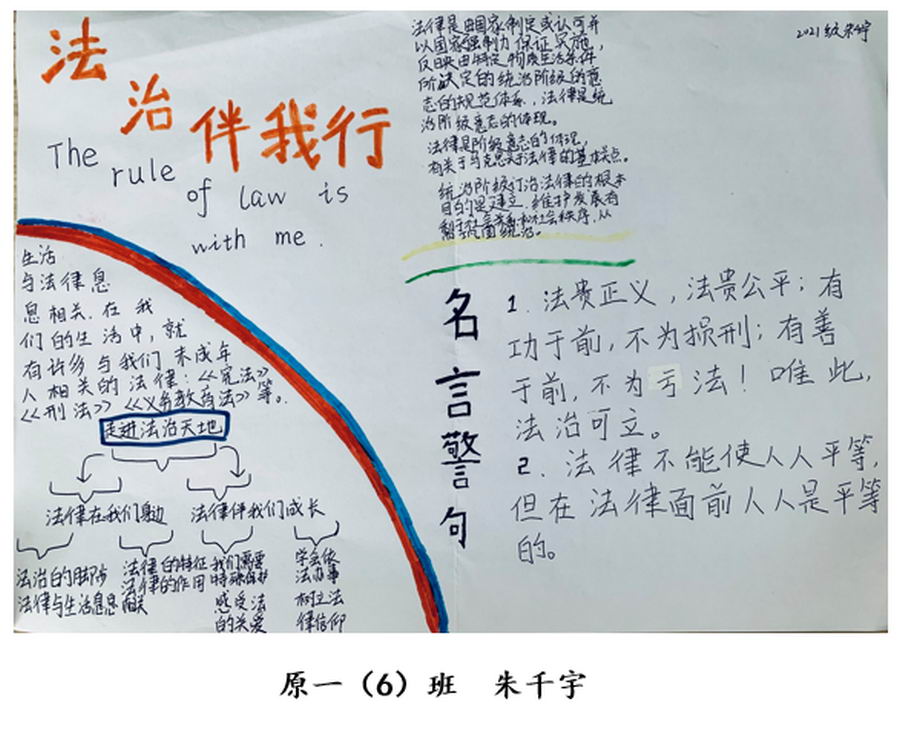 法
治
伴我行
The rule
of law is
with me.
法律是由国家制定或认可并
以国家强制力保证实施，
反映由特定物质生活条件
所决定的统治阶级的意
志的规范体系，法律是统
治阶级意志的体现。
法律是阶级意志的体现，
有关于马克思关于法律的基本点。
统治阶级订治法律的根本
目的是建立、维护发展有
社会秩序，从
统治。
2021级朱千宇
生活
与法律息
息相关，在我
们的生活中，就
有许多与我们未成年
人相关的法律：《宪法》
《刑法》《义务教育法》等。
走进法治天地
法律在我们身边
法律伴我们成长
法治的脚步
法律与生活息息相关
法律的特征
法律的作用
我们需要
特殊保护
感受法
的关爱
学会依
法办事
树立法
律信仰
名言警句
1. 法贵正义，法贵公平；有
功于前，不为损刑；有善
于前，不为亏法！唯此，
法治可立。
2. 法律不能使人人平等，
但在法律面前人人是平等
的。
原一（6）班 朱千宇